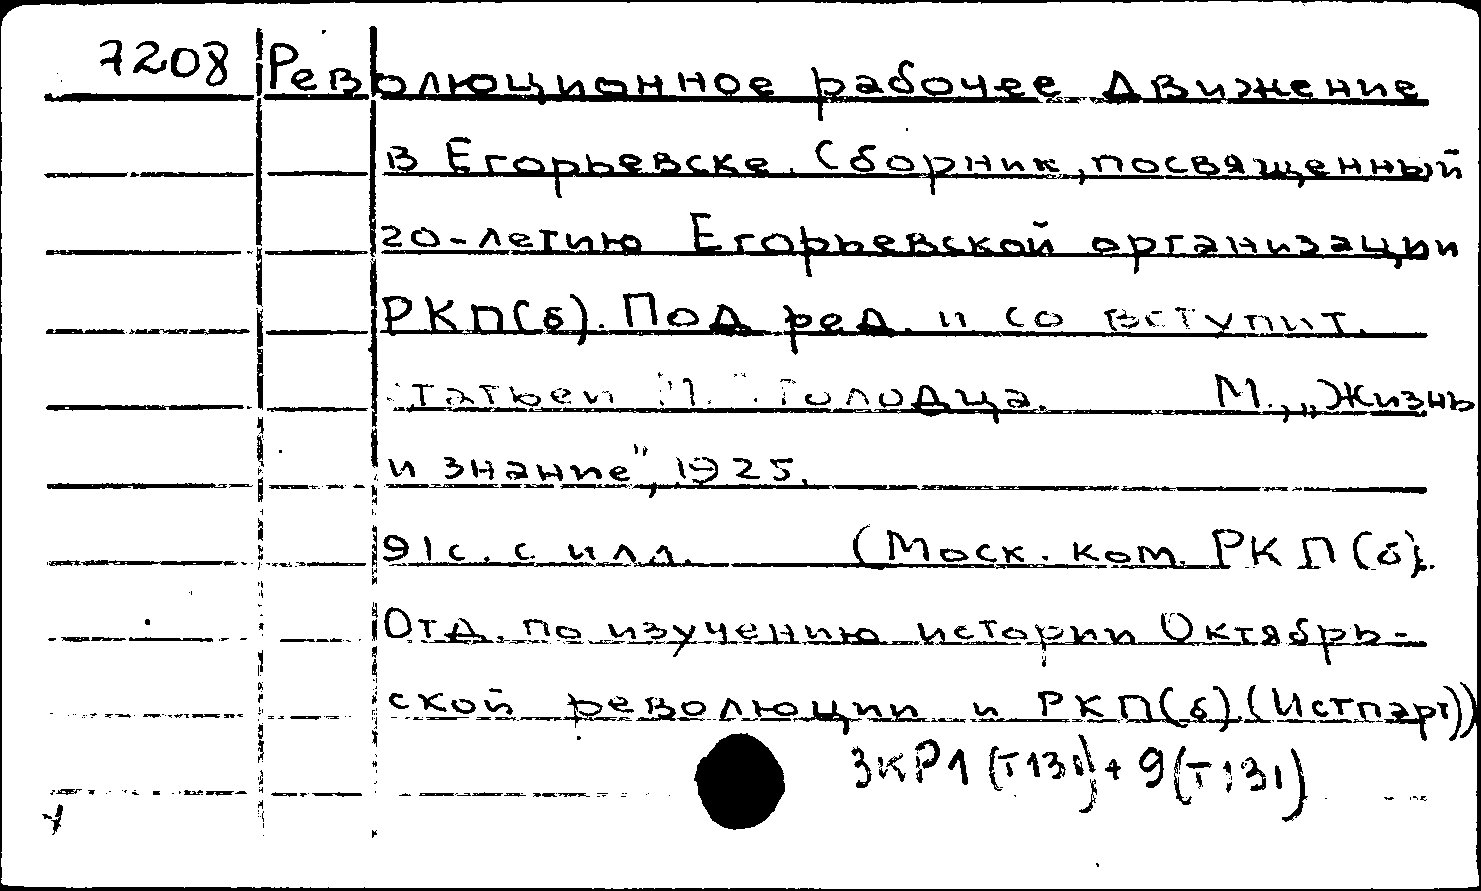 7208 Революционное рабочее движение
в Егорьевске. Сборник, посвященный
20-летию Егорьевской организации
РКП(б). Под ред. и со вступит.
статьей Голодца. М., „Жизнь
и знание", 1925.
91 с. с илл. (Моск. ком. РКП(б).
Отд. по изучению истории Октябрь-
ской революции и РКП(б) (Истпарт))
3КР1 (Т131) + 9(Т131)